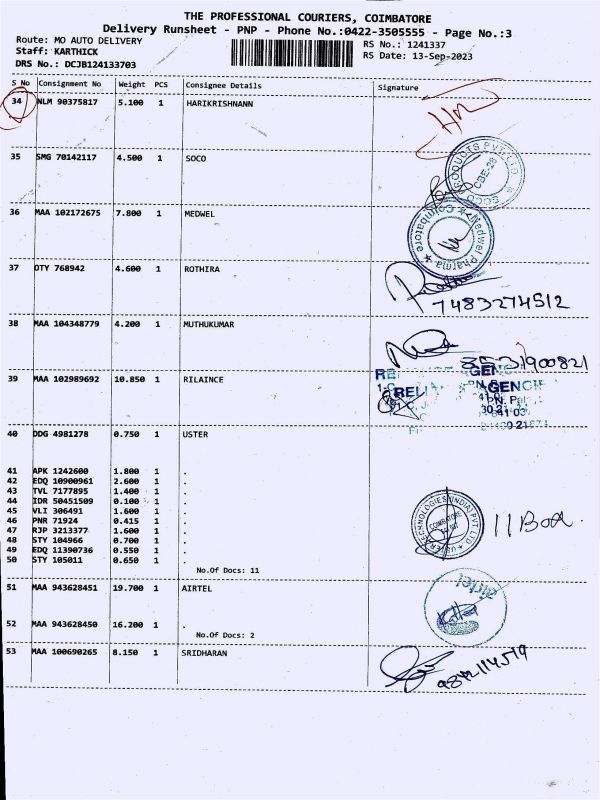 THE PROFESSIONAL COURIERS, COIMBATORE
Delivery Runsheet - PNP - Phone No.:0422-3505555 - Page No.:3
Route: MO AUTO DELIVERY
Staff: KARTHICK
DRS No.: DCJB124133703
RS No.: 1241337
RS Date: 13-Sep-2023
S No Consignment No Weight PCS Consignee Details Signature
34 NLM 90375817 5.100 1 HARIKRISHNANN
35 SMG 70142117 4.500 1 SOCO
CBE-28
36 MAA 102172675 7.800 1 MEDWEL
Medwel Pharma ★ Coimbatore ★
37 OTY 768942 4.600 1 ROTHIRA
7483274512
38 MAA 104348779 4.200 1 MUTHUKUMAR
8531900821
39 MAA 102989692 10.850 1 RILAINCE
AGENCIE
40 DDG 4981278 0.750 1 USTER
41 APK 1242600 1.800 1 .
42 EDQ 10900961 2.600 1 .
43 TVL 7177895 1.400 1 .
44 IDR 50451509 0.100 1 .
45 VLI 306491 1.600 1 .
46 PNR 71924 0.415 1 .
47 RJP 3213377 1.600 1 .
48 STY 104966 0.700 1 .
49 EDQ 11390736 0.550 1 .
50 STY 105011 0.650 1 .
No.Of Docs: 11
USTER TECHNOLOGIES (INDIA) PVT LTD
COIMBATORE
11 Box
51 MAA 943628451 19.700 1 AIRTEL
airtel
52 MAA 943628450 16.200 1 .
No.Of Docs: 2
53 MAA 100690265 8.150 1 SRIDHARAN
9842114519